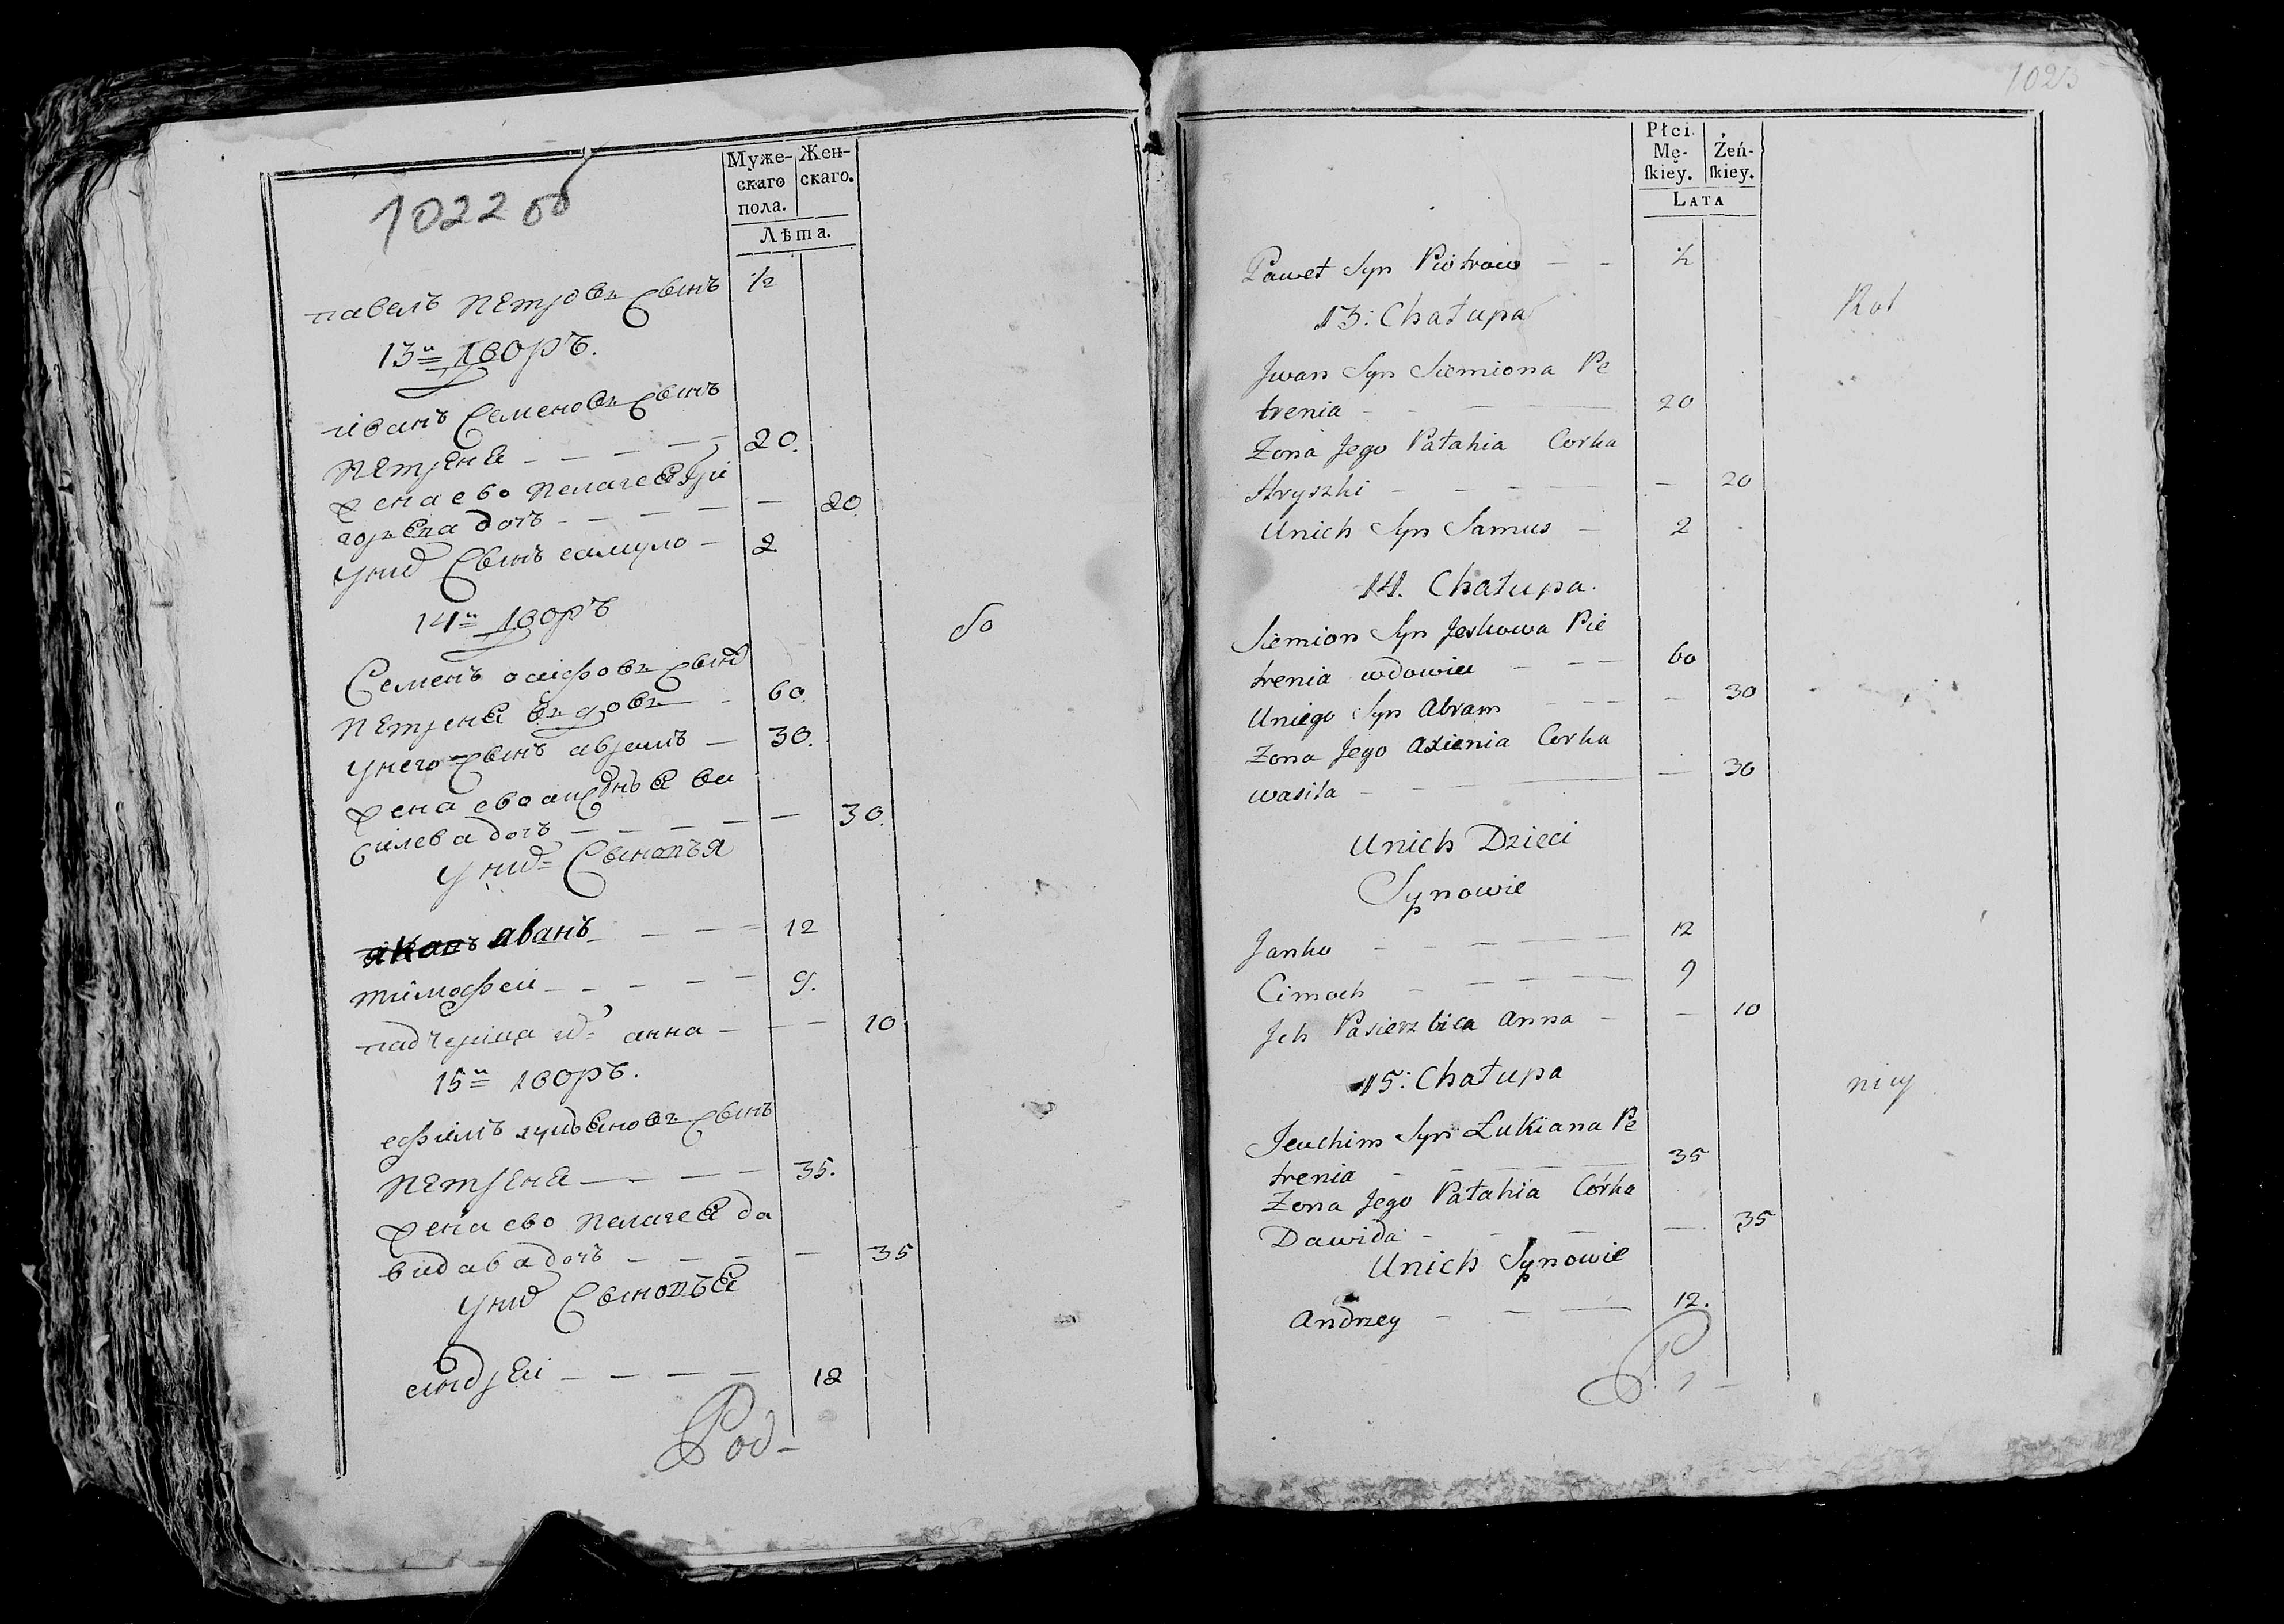 1022 об
Муже-
скаго
пола.
Жен-
скаго.
Лѣта.
павелъ петровъ сынъ ½
13й дворъ.
иванъ семеновъ сынъ
петреня 20.
жена ево пелагея гри
горьева дочь 20.
у них сынъ самуло 2
14й дворъ
семенъ осифовъ сынъ
петреня вдовъ 60.
у него сынъ абрамъ 30.
жена ево аксинья ва
силева дочь 30.
у них сыновья
аванъ 12
тимофеи 9.
падчерица их анна 10
15й дворъ.
ефимъ лукьяновъ сынъ
петреня 35.
жена ево пелагея да
видава дочь 35
у них сыновья
андреи 12
бо
1023
Płci.
Mę-
ſkiey.
Żeń-
ſkiey.
LATA
Paweł Syn Piotrow ½
13: Chałupa
Jwan Syn Siemiona Pe
trenia 20
Zona Jego Pałahia Corka
Hryszki 20
Unich Syn Samus 2
14. Chałupa.
Siemion Syn Jeskowa Pie
trenia wdowiec 60
Uniego Syn Abram 30
Zona Jego Axienia Corka
wasila 30
Unich Dzieci
Synowie
Janko 12
Cimoch 9
Jch Pasierzbica Anna 10
15: Chałupa
Jeuchim Syn Łukiana Pe
trenia 35
Zona Jego Pałahia Córka
Dawida 35
Unich Synowie
Andrzey 12.